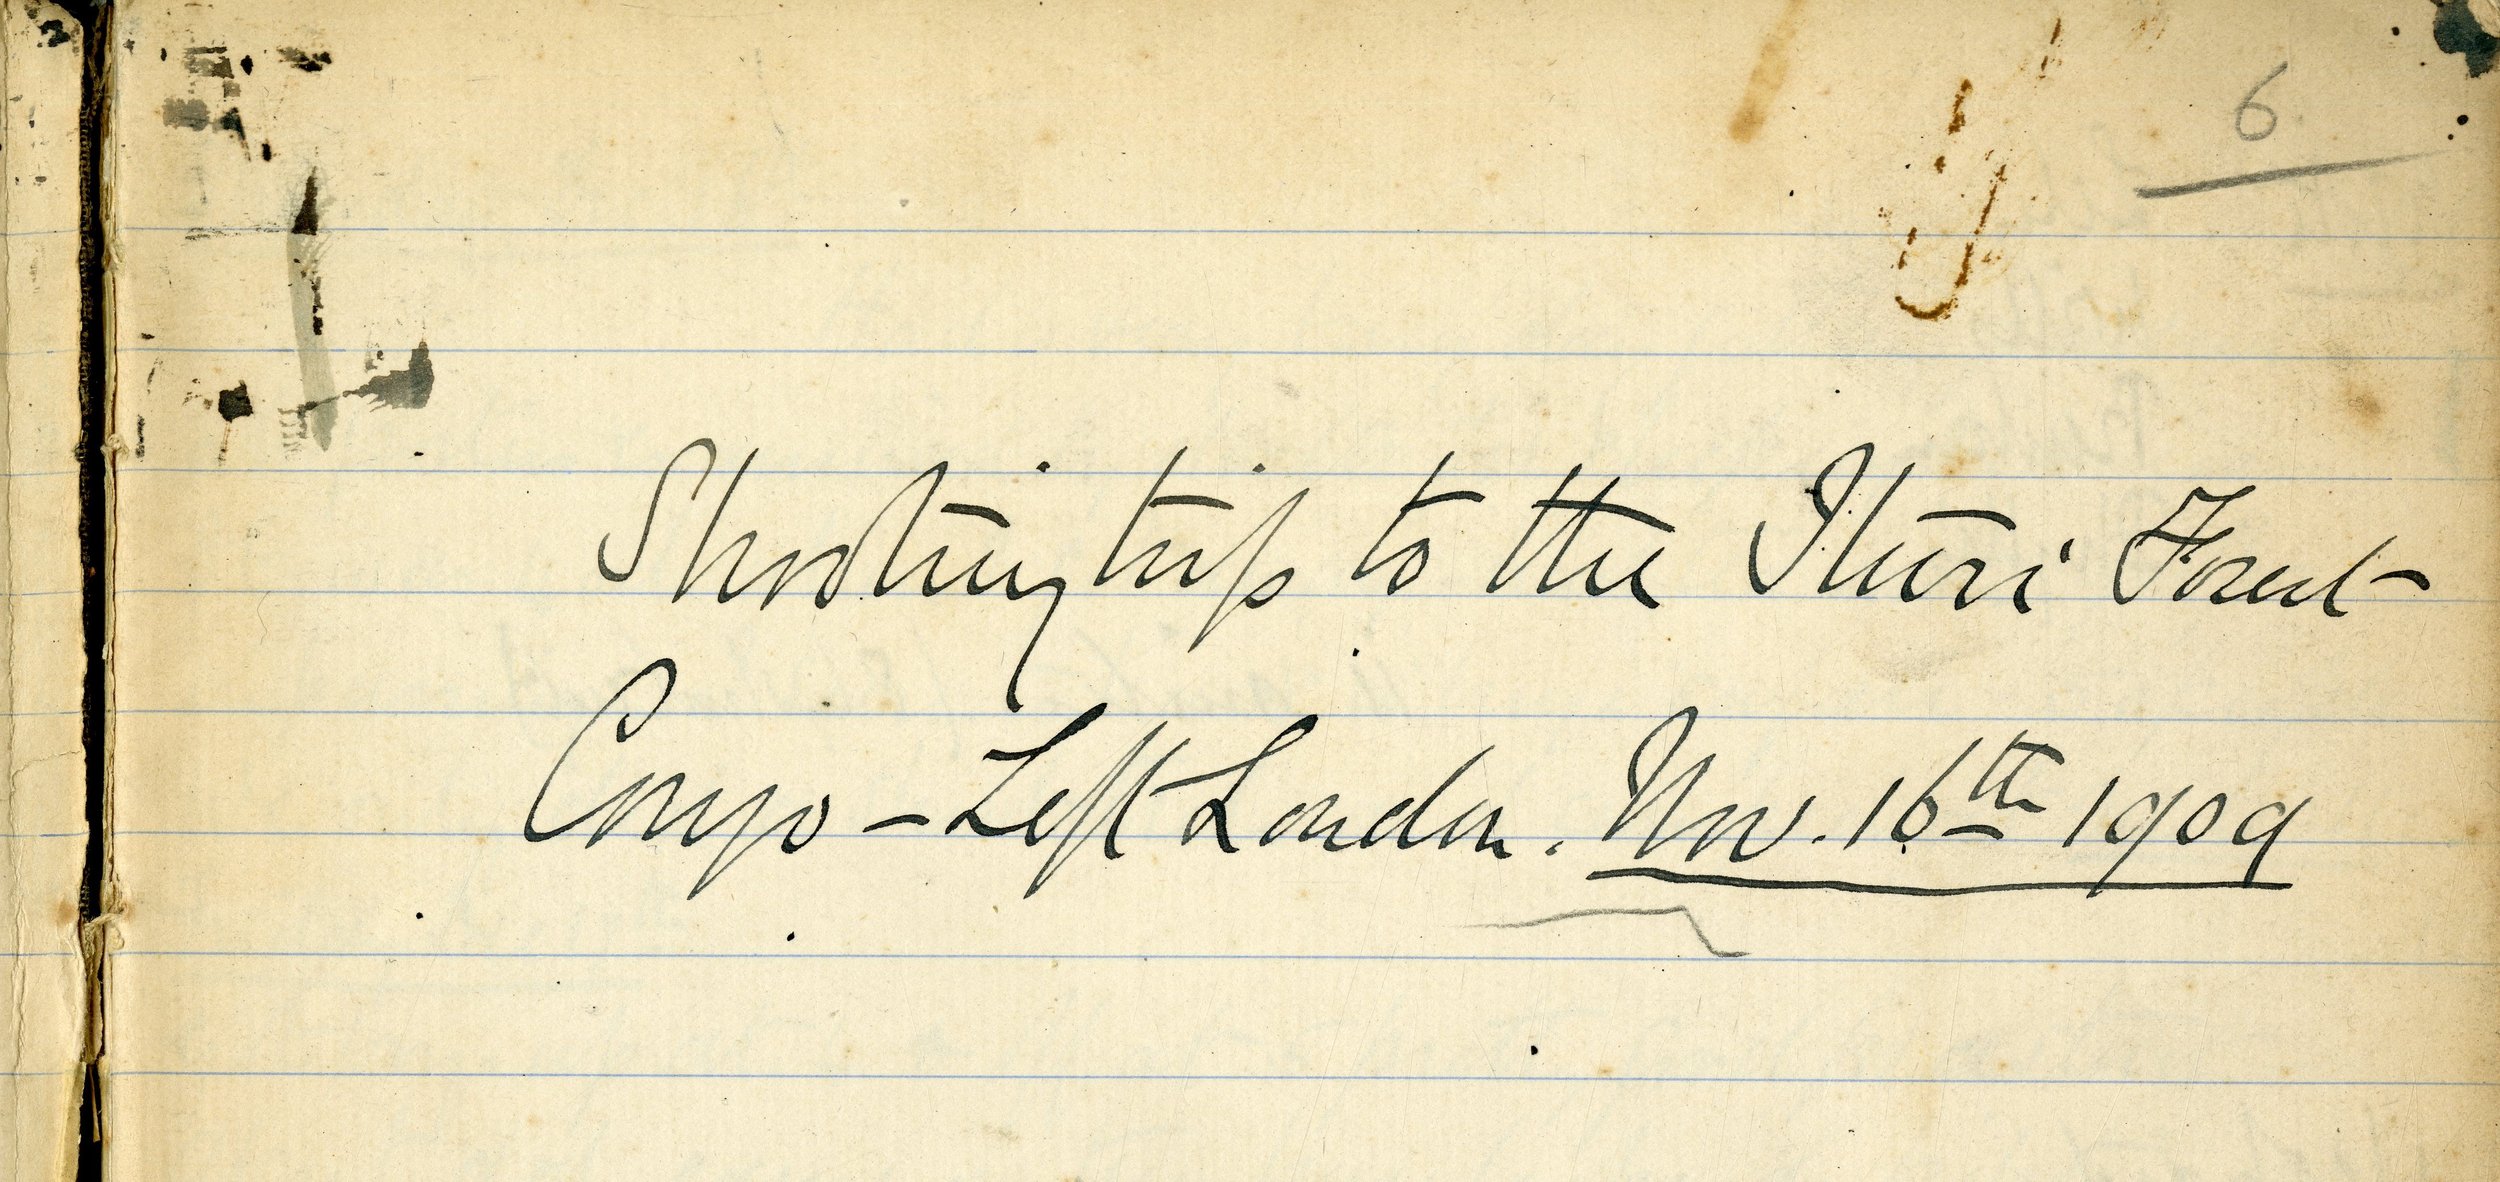 6
Shooting trip to the Ituri Forest
Congo - Left London. Nov. 16th 1909